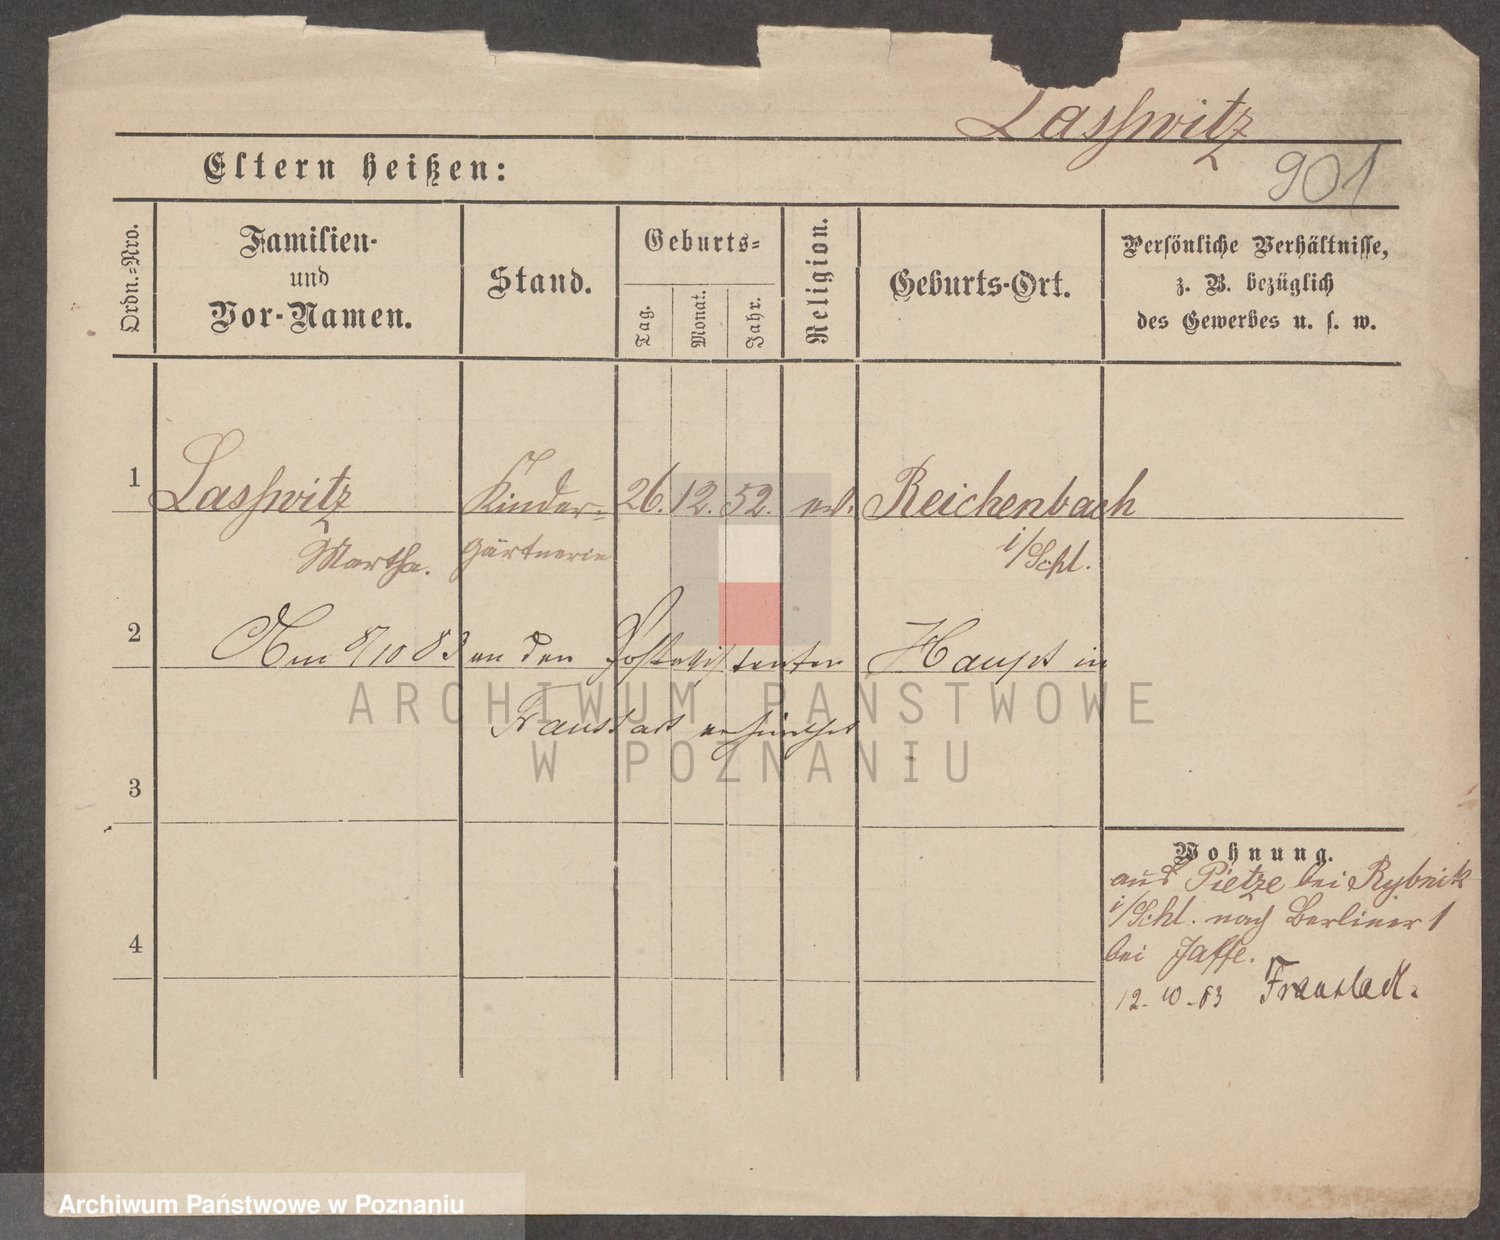 Lasswitz
901
Eltern heißen:
Ordn.-Nro.
Familien-
und
Vor-Namen.
Stand.
Geburts-
Tag.
Monat.
Jahr.
Religion.
Geburts-Ort.
Persönliche Verhältnisse,
z. B. bezüglich
des Gewerbes u. s. w.
1 Lasswitz Kinder- 26. 12. 52. ev. Reichenbach
Martha. gärtnerin i/Schl.
2 Am 8/10 83 an den Postassistenten Haupt in
Fraustadt
ARCHIWUM PAŃSTWOWE
W POZNANIU
3
4
Wohnung.
aus Pietze bei Rybnik
i/Schl. nach Berliner 1
bei Jaffe.
12-10-83 Fraustadt.
Archiwum Państwowe w Poznaniu